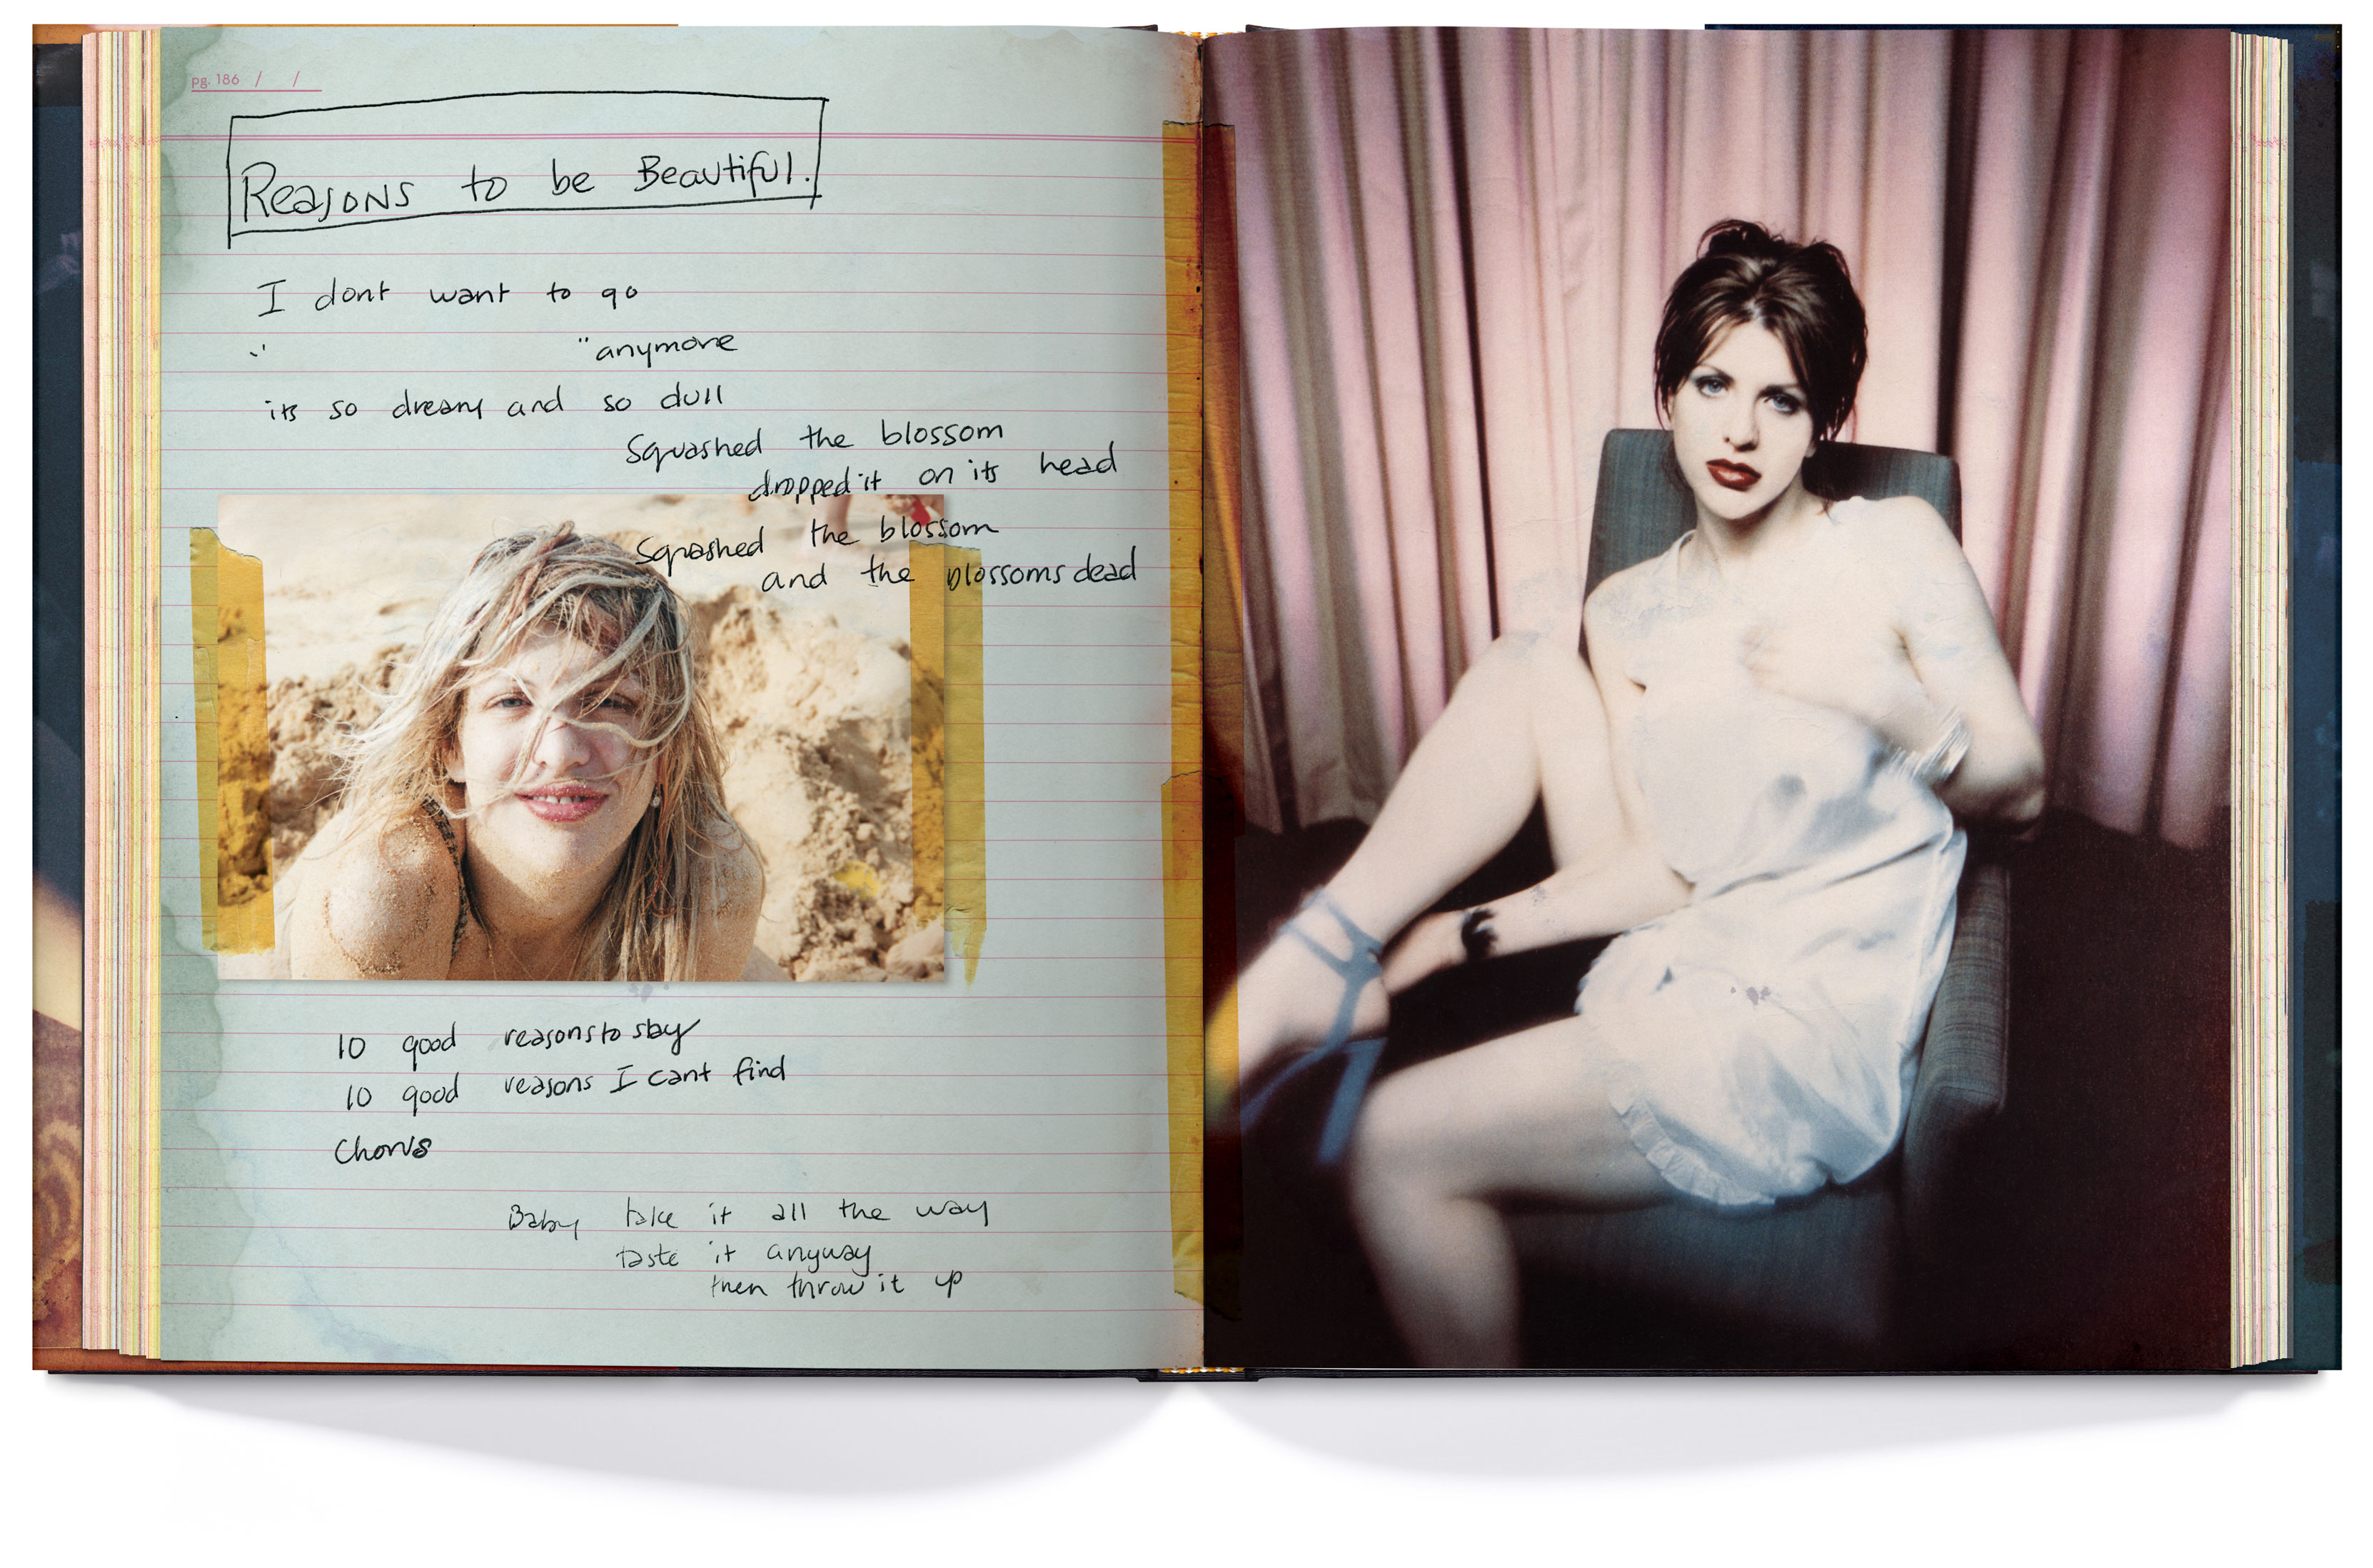 pg. 186 / /
Reasons to be Beautiful.
I dont want to go
" " anymore
its so dreary and so dull
Squashed the blossom
dropped it on its head
Squashed the blossom
and the blossoms dead
10 good reasons to stay
10 good reasons I cant find
Chorus
Baby take it all the way
taste it anyway
then throw it up